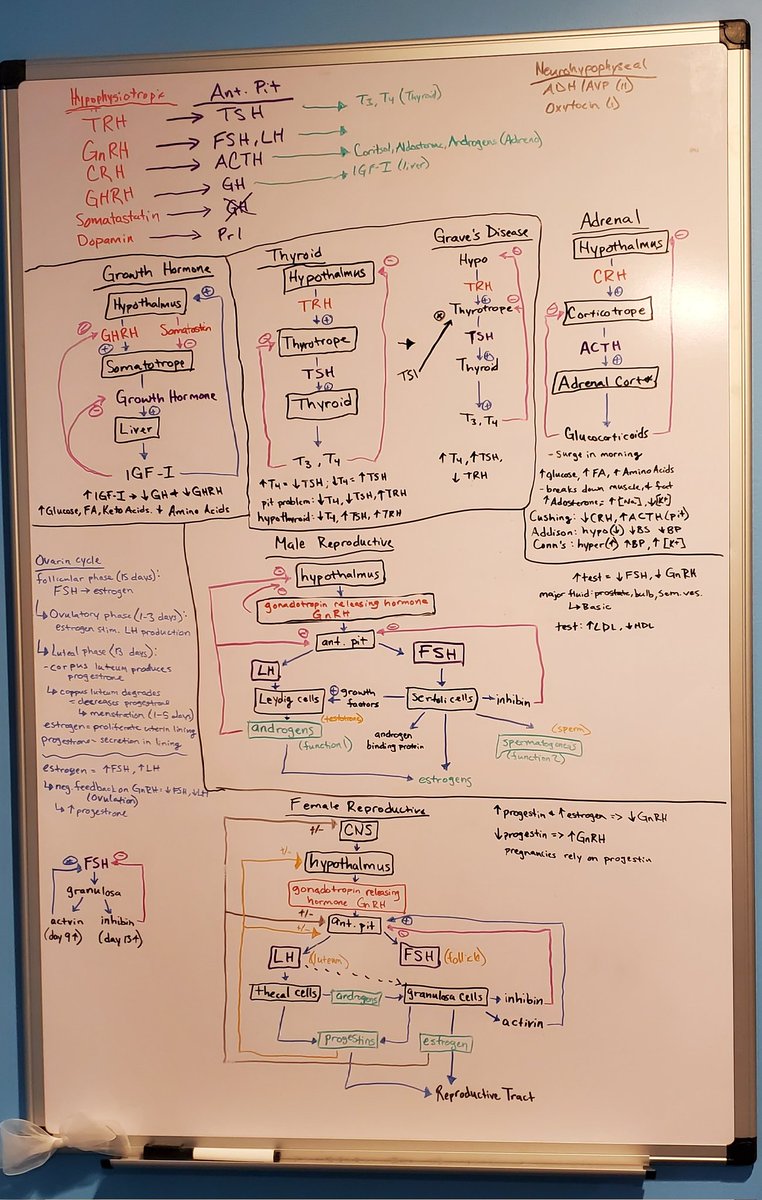 Hypophysiotropic
Ant. Pit
TRH → TSH → T3, T4 (Thyroid)
GnRH → FSH, LH →
CRH → ACTH → Coritsol, Aldosterone, Androgens (Adrenal)
GHRH → GH → IGF-I (liver)
Somatastatin → GH
Dopamin → Prl
Neurohypophyseal
ADH/AVP (11)
Oxytocin (1)
Growth Hormone
Hypothalmus
GHRH
Somatostin
Somatotrope
Growth Hormone
Liver
IGF-I
↑ IGF-I → ↓GH + ↓GHRH
↑Glucose, FA, Keto Acids. ↓ Amino Acids
Thyroid
Hypothalmus
TRH
Thyrotrope
TSH
Thyroid
T3, T4
↑T4 = ↓TSH; ↓T4 = ↑TSH
pit problem: ↓T4, ↓TSH, ↑TRH
hypothyroid: ↓T4, ↑TSH, ↑TRH
Grave's Disease
Hypo
TRH
Thyrotrope
TSI
TSH
Thyroid
T3, T4
↑T4, ↑TSH,
↓ TRH
Adrenal
Hypothalmus
CRH
Corticotrope
ACTH
Adrenal Cortex
Glucocorticoids
- Surge in morning
↑glucose, ↑FA, ↑Amino Acids
- breaks down muscle, ↓ fat
↑Adosterone = ↑[Na], ↓[K+]
Cushing: ↓CRH, ↑ACTH (pit)
Addison: hypo(↓) ↓BS ↓BP
Conn's: hyper(↑) ↑BP, ↑[K+]
Ovarin cycle
follicular phase (15 days):
FSH → estrogen
↳ Ovulatory phase (1-3 days):
estrogen stim. LH production
↳ Luteal phase (13 days):
- corpus luteum produces
progestrone
↳ corpus luteum degrades
= decreases progestrone
↳ menstration (1-5 days)
estrogen = proliferate uterin lining
progestrone - secretion in lining
estrogen = ↑FSH, ↑LH
↳ neg. feedback on GnRH: ↓FSH, ↓LH
(Ovulation)
↳ ↑ progestrone
FSH
granulosa
activin
inhibin
(day 9↑)
(day 13↑)
Male Reproductive
hypothalmus
gonadotropin releasing hormone
GnRH
ant. pit
LH
FSH
Leydig cells
growth
factors
Sertoli cells
inhibin
androgens
(testotrone)
(function 1)
androgen
binding protein
(sperm)
spermatogenesis
(function 2)
estrogens
↑test = ↓FSH, ↓ GnRH
major fluid: prostate, bulb, Sem. ves.
↳ Basic
test: ↑LDL, ↓HDL
Female Reproductive
+/-
CNS
+/-
hypothalmus
gonadotropin releasing
hormone GnRH
+/-
ant. pit
+/-
LH
(luteum)
FSH
(follicle)
thecal cells
androgens
granulosa cells
inhibin
activin
progestins
estrogen
Reproductive Tract
↑ progestin & ↑ estrogen => ↓ GnRH
↓ progestin => ↑ GnRH
pregnancies rely on progestin